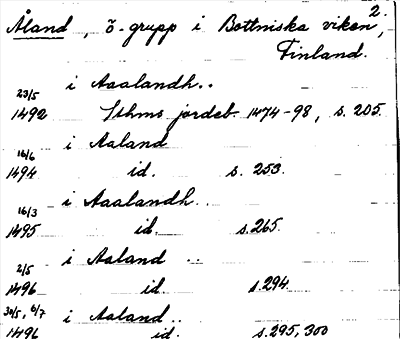 2.
Åland, ö-grupp i Bottniska viken,
Finland.
23/5 i Aaalandh..
1492 Sthms jordeb. 1474-98, s. 205.
16/6 i Aaland
1494 id. s. 253.
16/3 i Aaalandh..
1495 id. s. 265.
2/5 i Aaland ..
1496 id. s. 294.
30/5, 6/7 i Aaland..
1496 id. s. 295, 300